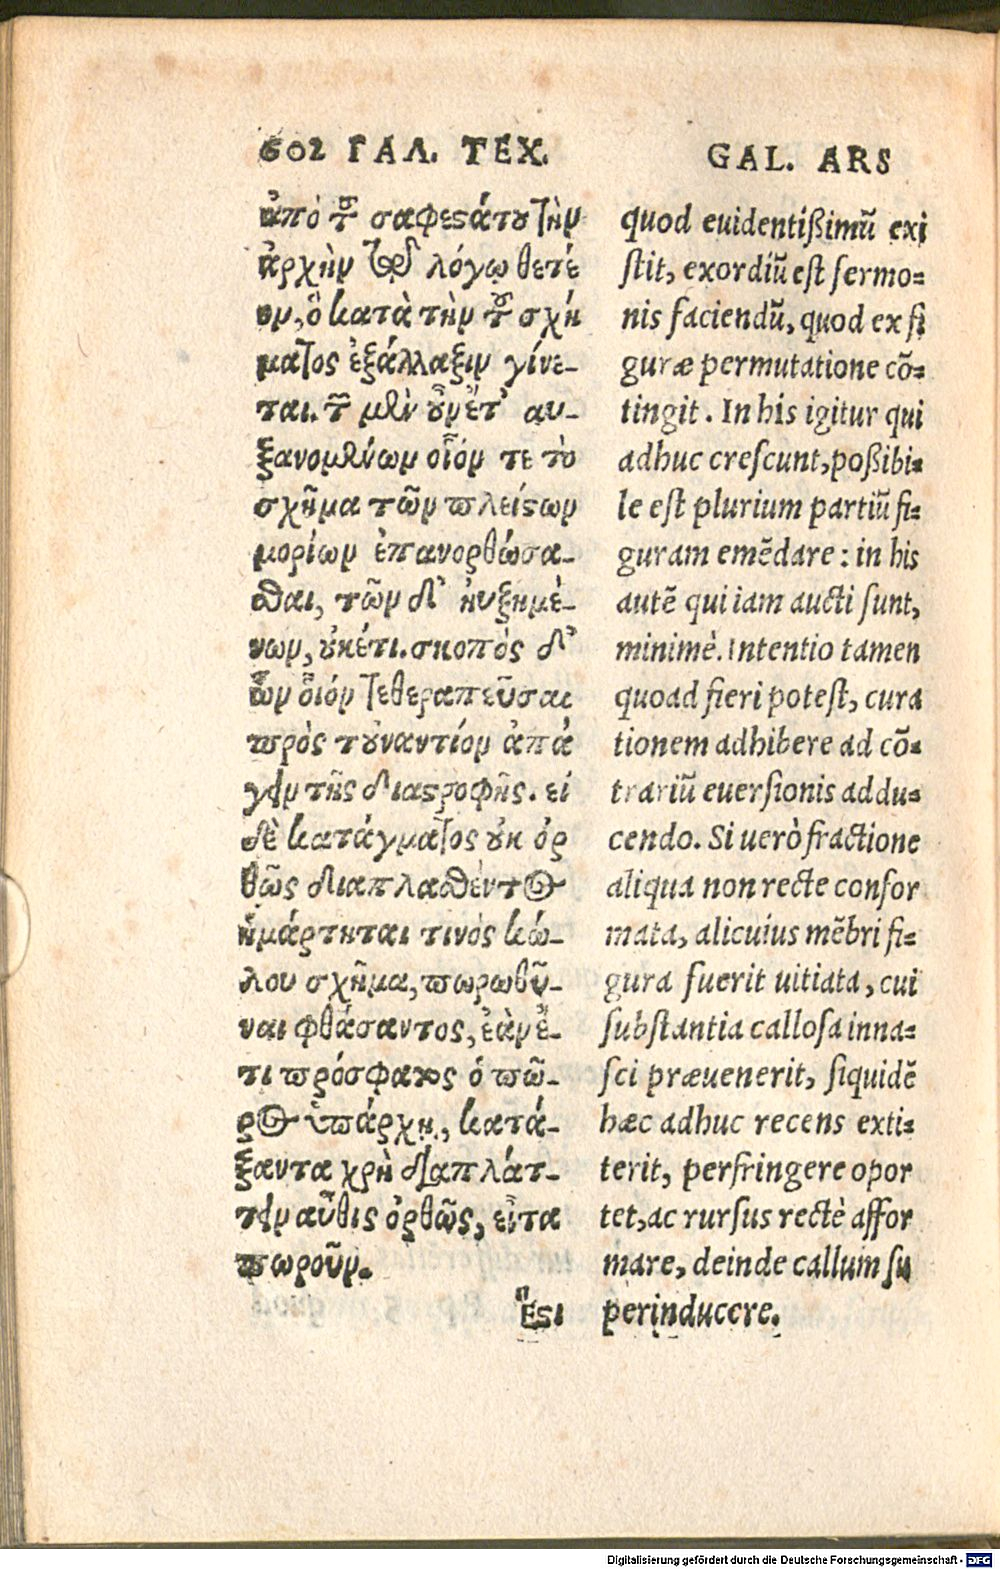 602 ΓΑΛ. ΤΕΧ.
ἀπὸ τοῦ σαφεστάτου τὴν
ἀρχὴν τῷ λόγῳ θετέ
ον, ὃ κατὰ τὴν τοῦ σχή
ματος ἐξάλλαξιν γίνε-
ται. τῶν μὲν οὖν ἔτ' αυ-
ξανομένων οἷόν τε τὸ
σχῆμα τῶν πλείστων
μορίων ἐπανορθώσα-
σθαι, τῶν δ' ηὐξημέ-
νων, οὐκέτι. σκοπὸς δ'
ὧν οἷόν τε θεραπεῦσαι
πρὸς τοὐναντίον ἀπά
γειν τῆς διαστροφῆς. εἰ
δὲ κατάγματος οὐκ ὀρ
θῶς διαπλασθέντος
ἡμάρτηται τινὸς κώ-
λου σχῆμα, πωρωθῆ-
ναι φθάσαντος, ἐὰν ἔ-
τι πρόσφατος ὁ πῶ-
ρος ὑπάρχῃ, κατά-
ξαντα χρὴ διαπλάτ-
τειν αὖθις ὀρθῶς, εἶτα
πωροῦν.
Ἔστι
GAL. ARS
quod euidentißimũ exi
ſtit, exordiũ eſt ſermo-
nis faciendũ, quod ex fi
guræ permutatione cõ-
tingit. In his igitur qui
adhuc creſcunt, poßibi-
le eſt plurium partiũ fi-
guram emẽdare: in his
autẽ qui iam aucti ſunt,
minimè. Intentio tamen
quoad fieri poteſt, cura
tionem adhibere ad cõ-
trariũ euerſionis addu-
cendo. Si uerò fractione
aliqua non recte confor
mata, alicuius mẽbri fi-
gura fuerit uitiata, cui
ſubſtantia calloſa inna-
ſci præuenerit, ſiquidẽ
hæc adhuc recens exti-
terit, perfringere opor
tet, ac rurſus rectè affor
mare, deinde callum ſu
perinducere.
Digitalisierung gefördert durch die Deutsche Forschungsgemeinschaft - DFG